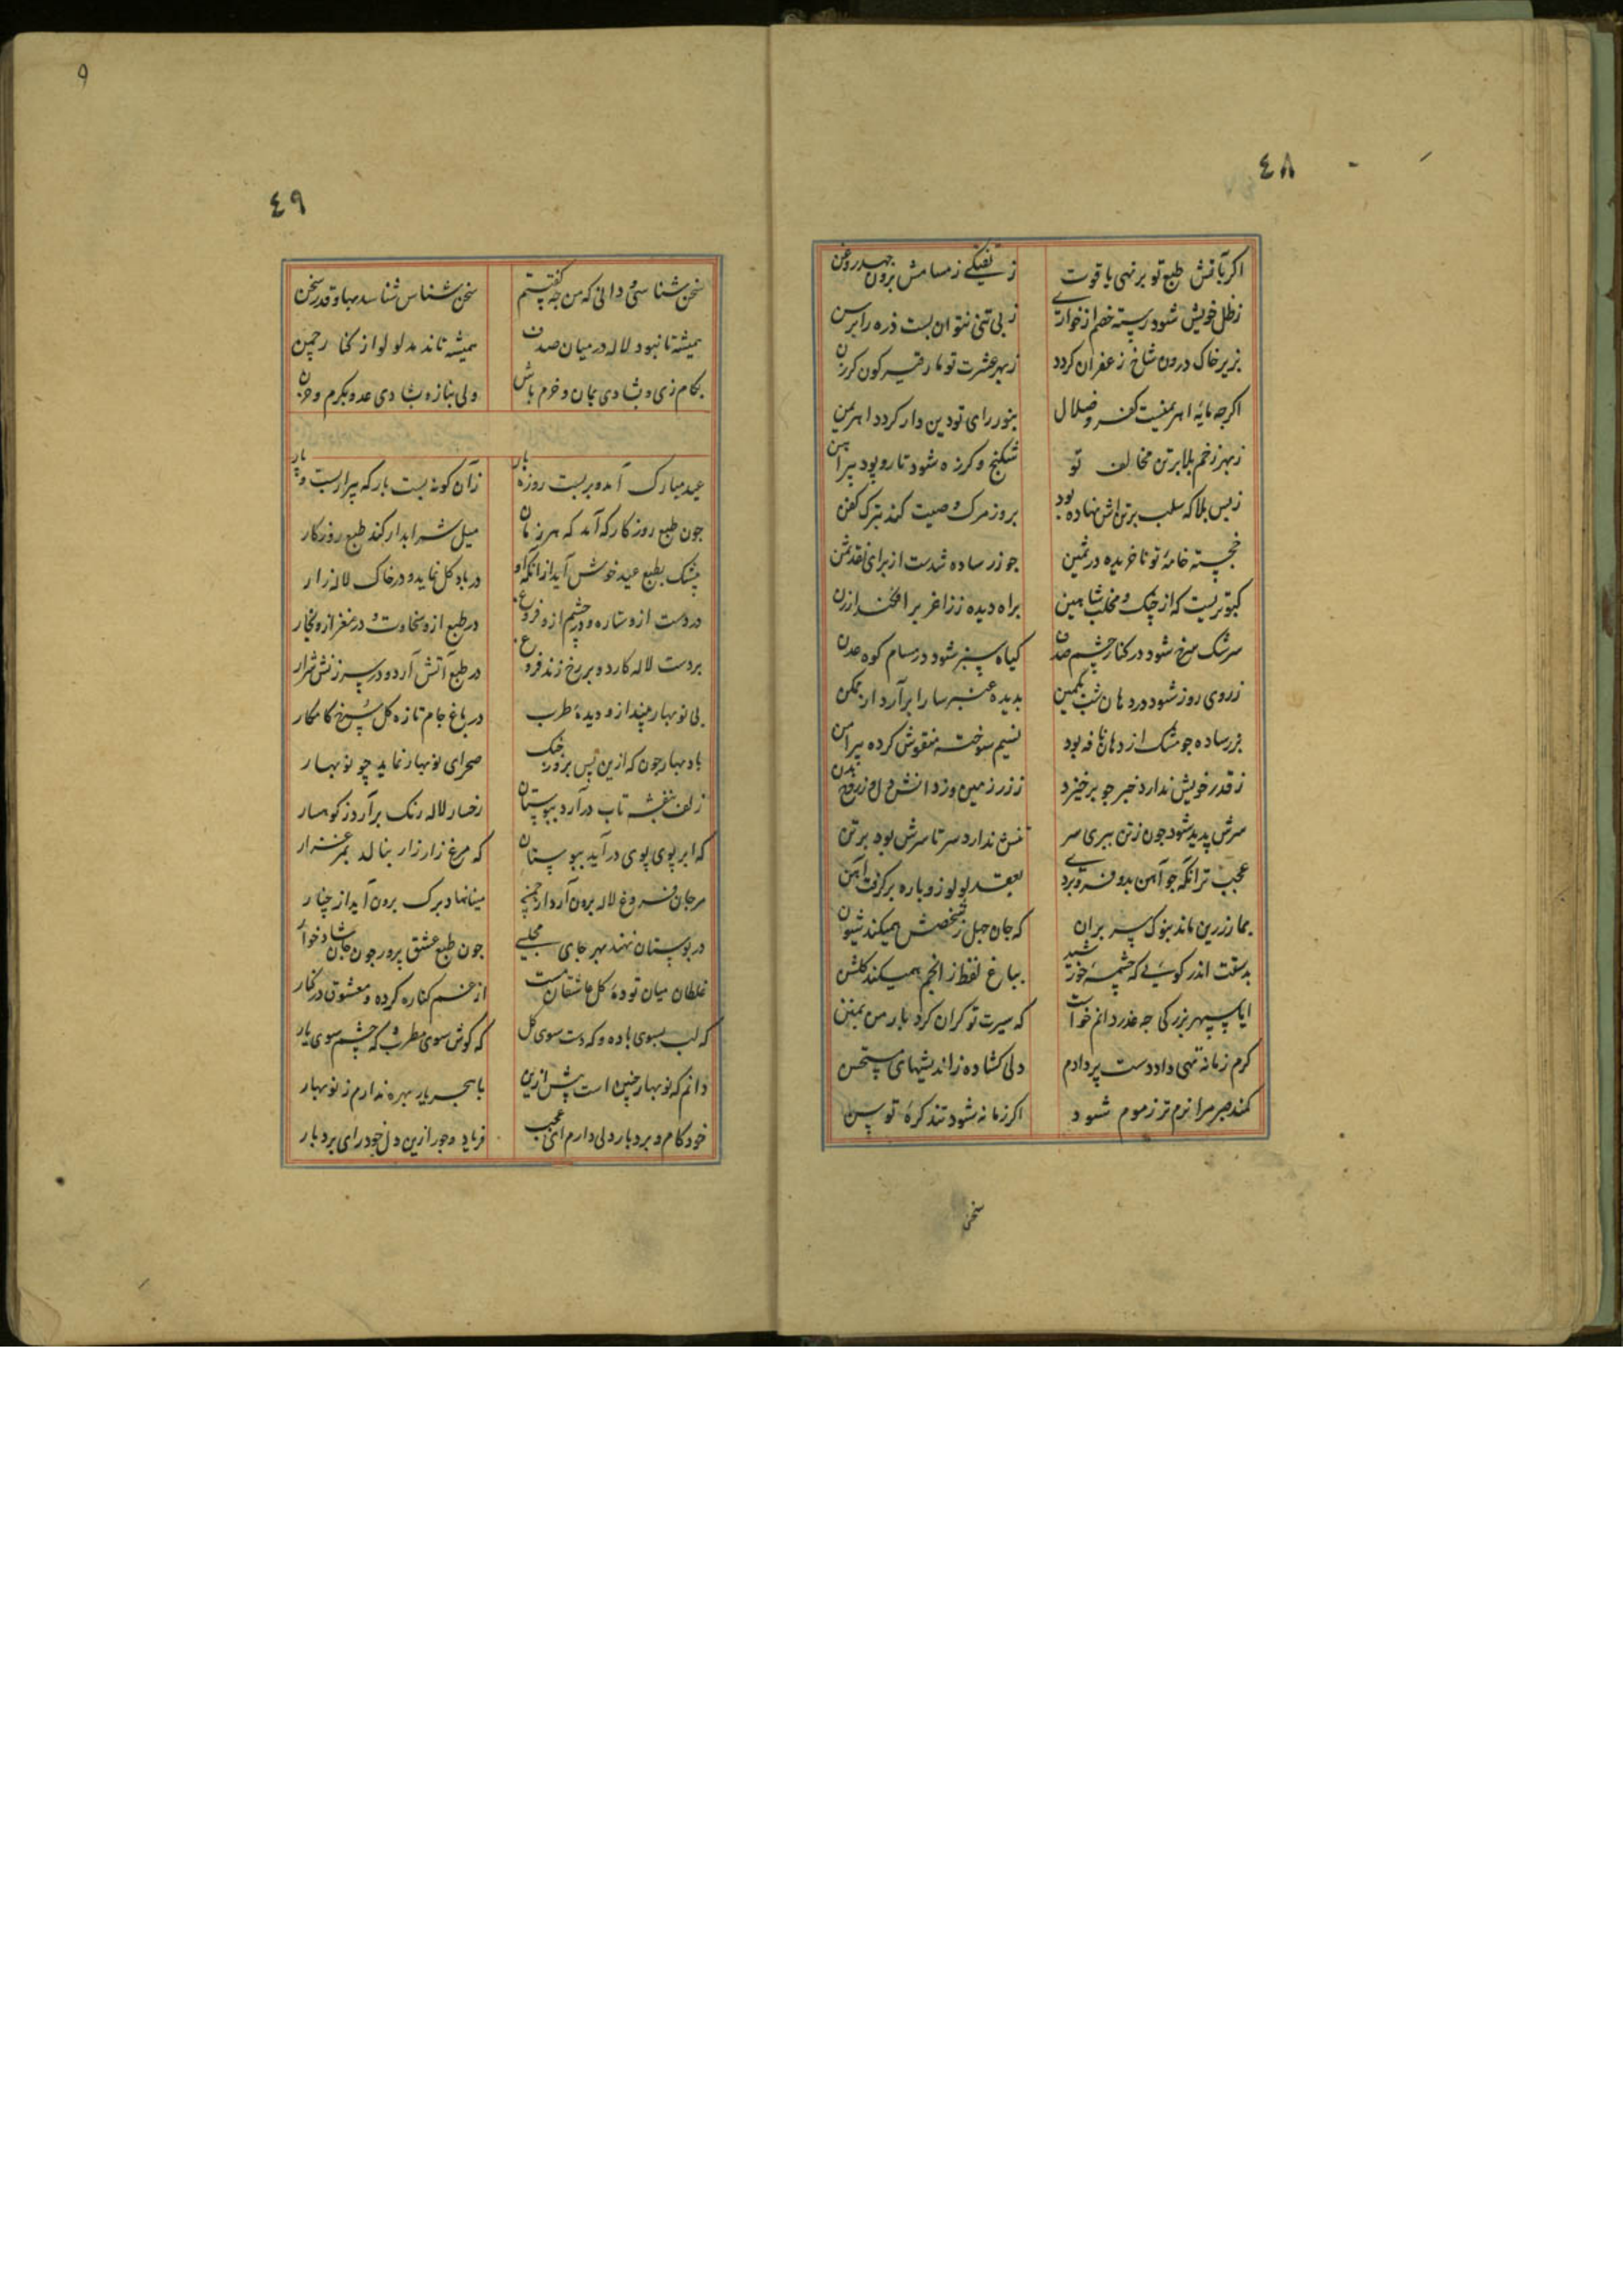 ٤٨
اکر بآتش طبع تو بر نهی یاقوت ز تفّکی ز مسامش برون جهد روغن
ز ظل خویش شود رسته خصم از خواری ز بی تنی نتوان بست ذره را برسن
بزیر خاک درون شاخ زعفران کردد ز بهر عشرت تو
اکرجه مایهٔ اهریمنیست کفر و ضلال بنور رای تو دین دار کردد اهریمن
ز بهر زخم بلا بر تن مخالف تو شکنج و کرزه شود تار و پود پیراهن
ز بس بلا که سلب بر تن اش نهاده بود بروز مرک وصیت کند بترک کفن
خجسته خامهٔ تو ناخریده در ثمین جو زر ساده شدست از برای نقد ثمن
کبوتریست که از چنک و مخلب شاهین براه دیده
سرشک سرخ شود در کنار چشم صدف کیاه سبز شود در مسام کوه عدن
ز روی روز شود در دهان شب بکمین بدیده عنبر سارا برآرد از مکمن
بزر ساده جو مشک از دهان نافه بود نسیم سوخته منقوش کرده پیرامن
ز قدر خویش ندارد خبر جو برخیزد ز زر زمین وز دانش دل وز روح بدن
سرش پدید شود جون ز تن ببری سر تنش ندارد سر تا سرش بود بر تن
عجب تر آنکه جو آهن بدو فرو بردی بعقد لولو ز وباره برکرفت آهن
بمار زرین ماند بنوک پر بران که جان جبل ز شخصش همیکند شیون
بدستت اندر کوئی که چشمه خورشید بباغ لفظ ز انجم همیکند کلشن
ایا سپهر بزرکی جه عذر دانم خواست که سیرت تو کران کرد بار من بمنن
کرم زمانه تهی داد دست پر دادم دلی کشاده ز اندیشهای مستحسن
کمند صبر مرا نرم تر ز موم شود اکر زمانه شود تند کرهٔ توسن
سخن
٩
٤٩
سخن شناسی و دانی که من جه کفتستم سخن شناس شناسد بها و قدر سخن
همیشه تا نبود لاله در میان صدف همیشه تا ندمد لولو از کنار چمن
بکام زی و بشادی بمان و خرم باش ولی بناز و بشادی عدو بکرم و حزن
عید مبارک آمد و بربست روزه بار زآن کونه بست بار که پیرار بست و پار
جون طبع روزکار که آمد که هر زمان میل شراب دار کند طبع روزکار
چشمک بطبع عید خوش آید از آنکه او در باد کل نماید و در خاک لاله زار
در دست ازو ستاره و در چشم ازو فروغ در طبع ازو سخاوت و در مغز ازو بخار
بر دست لاله کارد و بر رخ زند فروغ در طبع آتش آرد و در سر زنش شرار
بی نوبهار چیند ازو دیدهٔ طرب در باغ جام تازه کل سرخ کامکار
باد بهار جون که ازین پس بروز جنک صحرای نوبهار نماید چو نوبهار
زلف بنفشه تاب درآرد ببوستان رخسار لاله رنک برآرد ز کوهسار
که ابر پوی پوی درآید ببوستان که مرغ زار زار بنالد بمرغزار
مرجان فروغ لاله برون آرد از جمن مینا نهاد برک برون آید از چنار
در بوستان نهند بهر جای مجلسی جون طبع عشق پرور جون جان شادخوار
غلطان میان تودهٔ کل عاشقان مست از غم کناره کرده و معشوق در کنار
که لب بسوی باده و که دست سوی کل که کوش سوی مطرب و که چشم سوی یار
دانم که نوبهار چنین است پیش ازین با هجر یار بهره ندارم ز نوبهار
خودکام و بردبار دلی دارم ای عجب فریاد و جور ازین دل خودرای بردبار